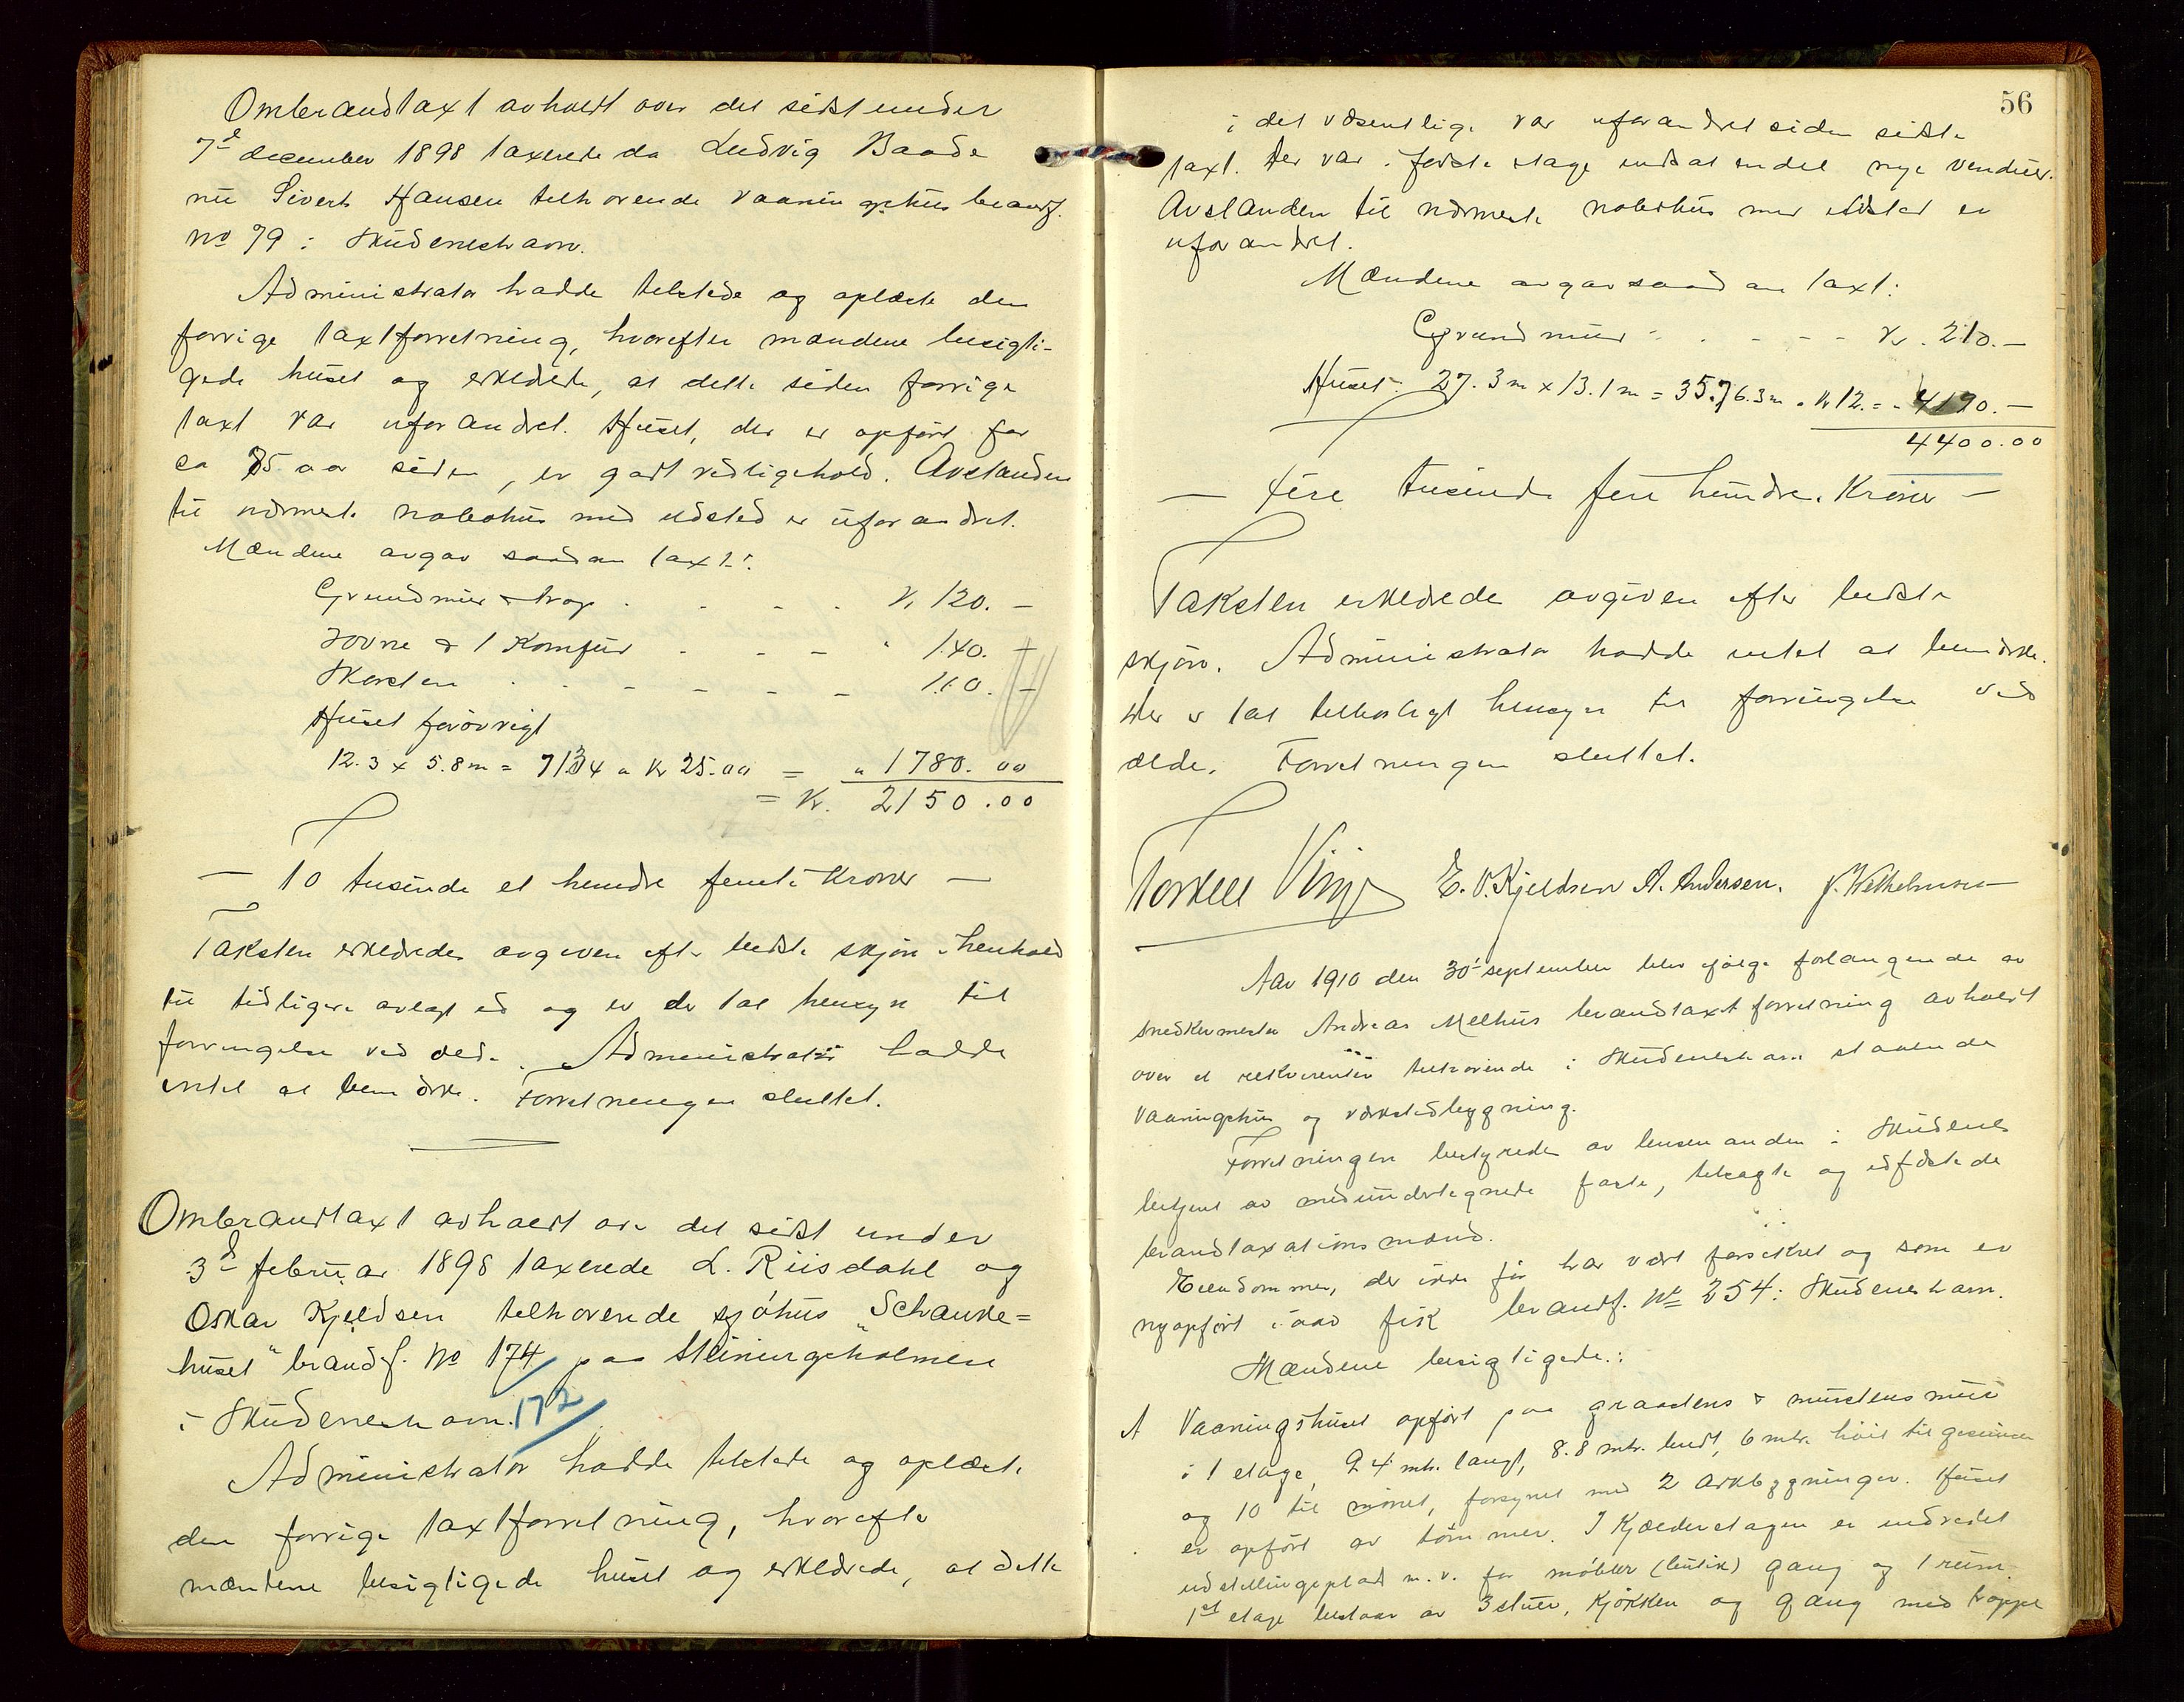 Ombrandtaxt avholdt over det sidst under
7de december 1898 taxerede da Ludvig Baade
nu Sivert Hansen tilhørende vaaningshus brandf.
no 79 i Skudeneshavn.
Administrator hadde tilstede og oplæste den
forrige taxtforretning, hvorefter mændene besigti-
gede huset og erklærte, at dette siden forrige
taxt var uforandret. Huset, der er opført for
ca 35 aar siden, er godt vedligehold. Avstanden
til nærmeste nabohus med ildsted er uforandret.
Mændene avgav saadan taxt:
Grundmur & trap . . . . Kr 120. —
2 ovne & 1 Komfur - - - " 140. —
Skorsten . . - - - - 110. —
Huset forøvrigt
12.3 x 5.8 m = 7134 a Kr 25.00 = " 1780.00
= Kr. 2150.00
— To tusinde et hundre femti Kroner —
Taksten erklæredes avgiven efter bedste skjøn i henhold
til tidligere avlagt ed og er der tat hensyn til
forringelse ved ælde. Administrator hadde
intet at bemærke. Forretningen sluttet.
Ombrandtaxt avholdt over det sidst under
3de februar 1898 taxerede L. Riisdahl og
Oskar Kjeldsen tilhørende sjøhus "Schanke=
huset" brandf. No 174 paa Steiningsholmen
i Skudeneshavn. 172
Administrator hadde tilstede og oplæste
den forrige taxtforretning, hvorefter
mændene besigtigede huset og erklærede, at dette
56
i det væsentlige var uforandret siden sidste
taxt. Der var i første etage indsat endel nye vinduer.
Avstanden til nærmeste nabohus med ildsted er
uforandret.
Mændene avgav saadan taxt:
Grundmur - . - - - Kr. 210. —
Huset: 27.3 m x 13.1 m = 357.63 m a Kr 12. = " 4190. —
4400.00
— Fire tusinde fire hundre Kroner —
Taksten erklærede avgiven efter bedste
skjøn. Administrator hadde intet at bemærke.
Der er tat tilbørligt hensyn til forringelse ved
ælde. Forretningen sluttet.
Torkell Vinje E. O. Kjeldsen A. Andersen. J. Wilhelmsen
Aar 1910 den 30' september blev ifølge forlangende av
snedkermester Andreas Melhus brandtaxtforretning avholdt
over et rekvirenten tilhørende i Skudeneshavn staaende
vaaningshus og værkstedbygning.
Forretningen bestyredes av lensmanden i Skudenes
betjent av medundertegnede faste, tilsagte og edfæstede
brandtaxationsmænd.
Eiendommen, der ikke før har vært forsikret og som er
nyopført iaar fik brandf. No 254 i Skudeneshavn.
Mændene besigtigede:
A Vaaningshuset opført paa graastens & murstens mur
i 1 etage, 9.4 mtr. langt, 8.8 mtr. bredt, 6 mtr. høit til gesimsen
og 10 til mønet, forsynet med 2 arkbygninger. Huset
er opført av tømmer. I Kjælderetagen er indredet
utstillingsplads m.v. for møbler (butik) gang og 1 rum.
1ste etage bestaar av 3 stuer, kjøkken og gang med trappe